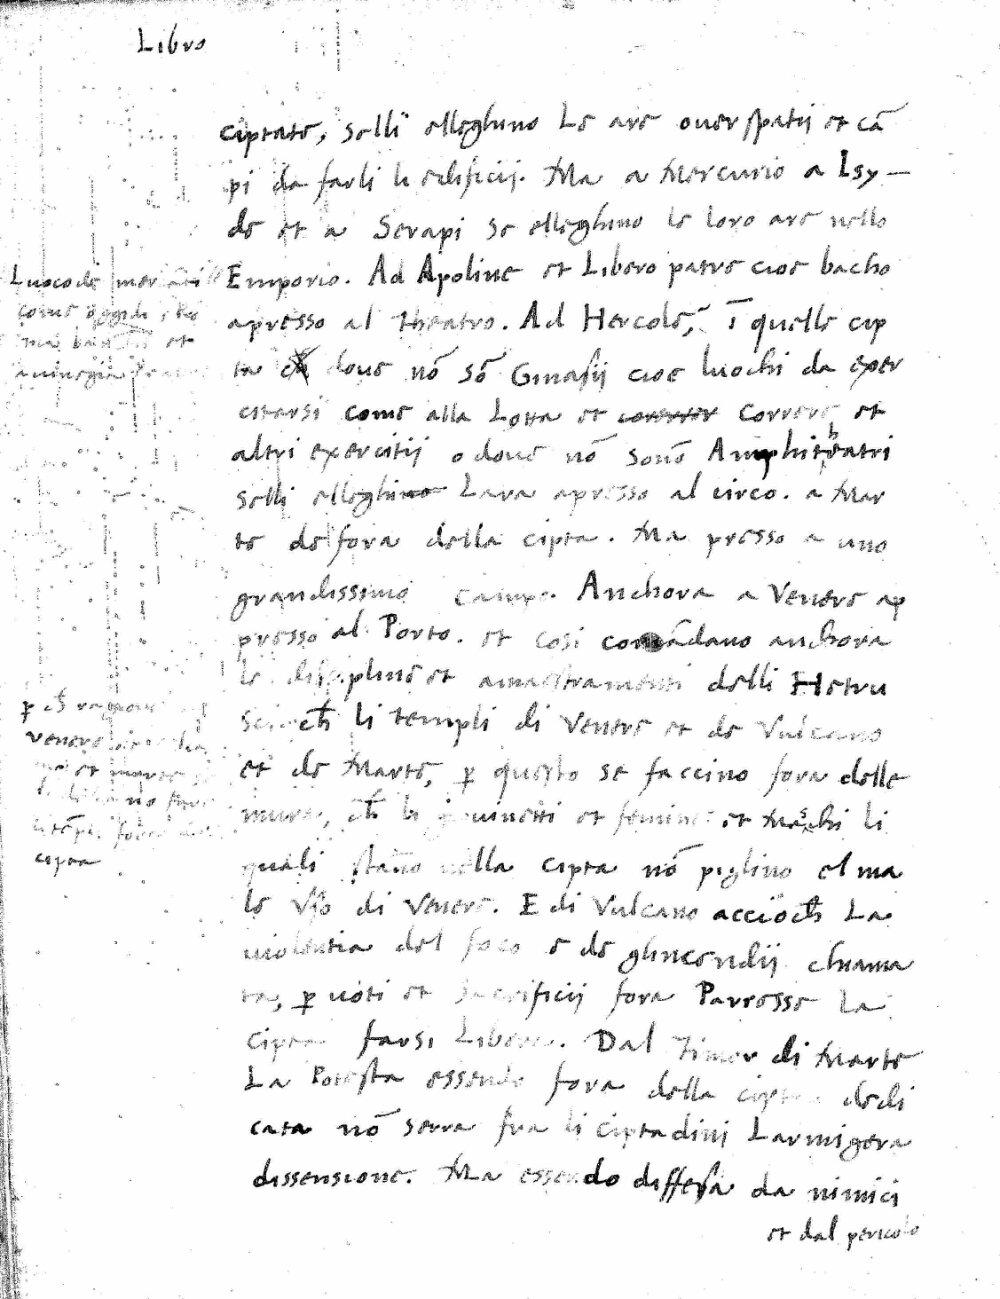 Libro
ciptate, selli elleghino Le are over spatij et cã
pi da farli li edificij. Ma a Mercurio a Isy-
de et a Serapi se elleghino le loro are nello
Emporio. Ad Apoline et Libero patre cioe bacho
apresso al theatro. Ad Hercole, ĩ quelle cip
ta dove nõ sõ Ginasij cioe luochi da exer
citarsi come alla Lotta et correre et
altri exercitij o dove nõ sonõ Amphitheatri
selli elleghino Lara apresso al circo. a Mar
te de fora della cipta. Ma presso a uno
grandissimo campo. Anchora a Venere ap
presso al Porto. et cosi comãdano anchora
le discipline et amaestramenti delli Hetru
sci ch̃ li templi di Venere et de Vulcano
et de Marte, ꝑ questo se faccino fora delle
mure, ch̃ li giovinetti et femine et Maschi li
quali stano nella cipta nõ piglino el ma
le Uso di Venere. E di Vulcano acciõch̃ La
violentia del foco e de glincendij chiama
ta, ꝑ voti et sacrificij fora Paresse La
cipta farsi Libera. Dal Timor di Marte
La Potesta essendo fora della cipta dedi
cata nõ serra fra li Ciptadini Larmigera
dissensione. Ma essendo diffesa da nimici
et dal pericolo
Luoco de mer
come oggidi
et
ꝑ ch̃
Venere
et marte
fora
cipta